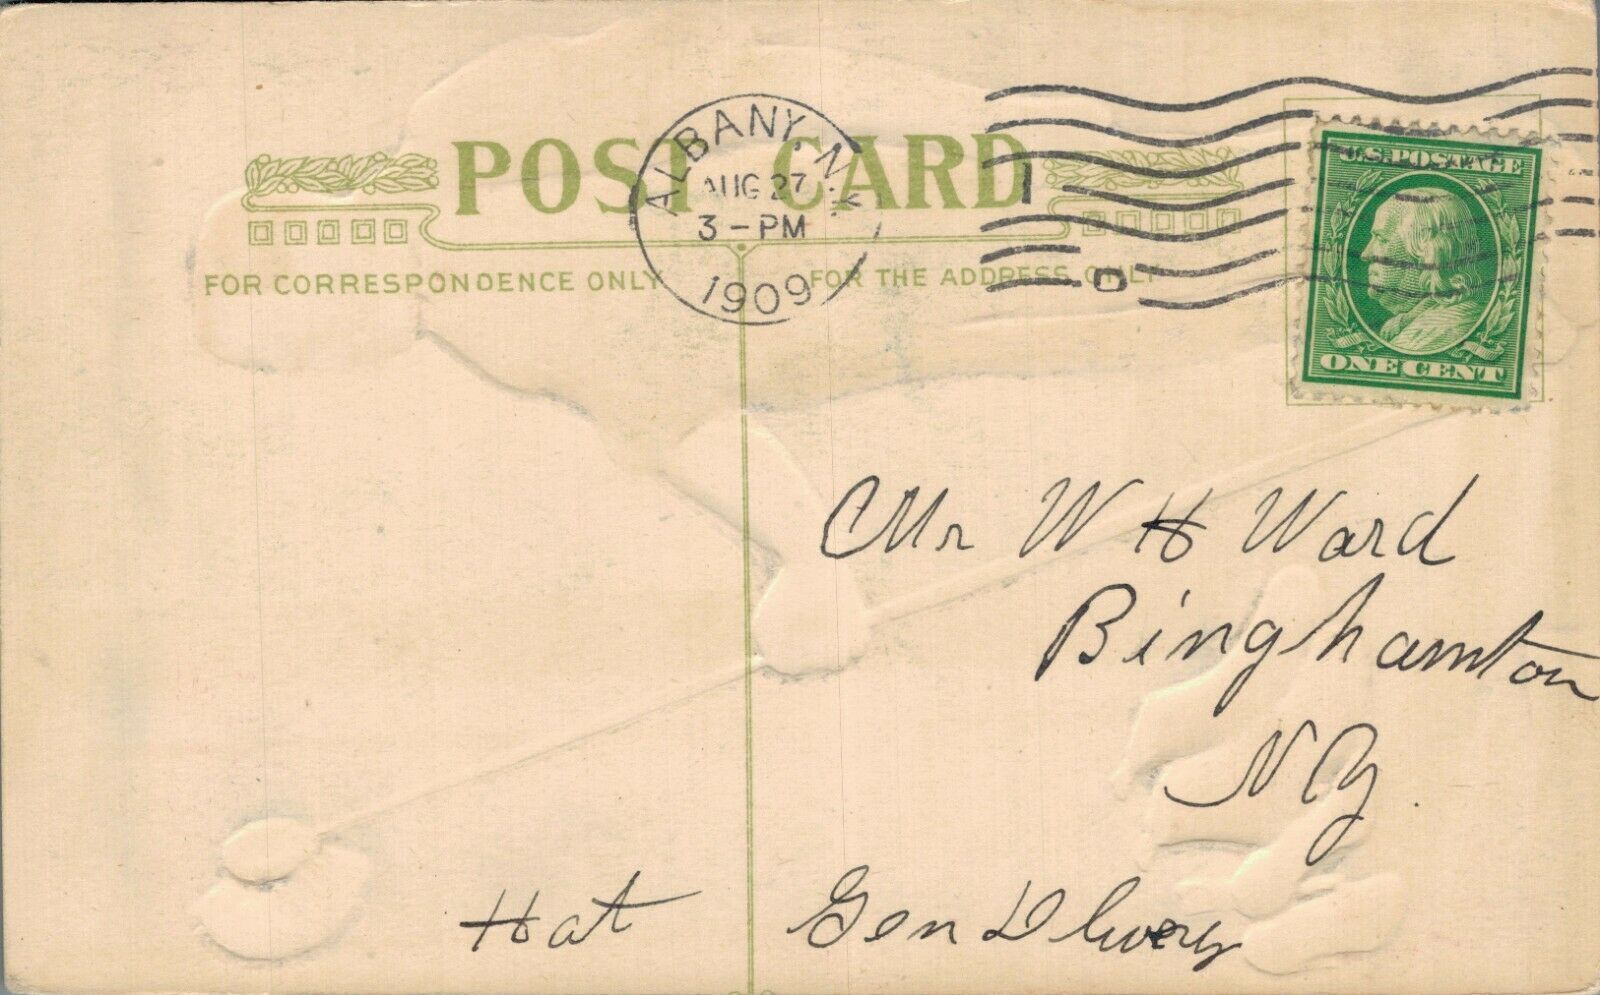 POST CARD
ALBANY, N.Y.
AUG 27
3-PM
1909
1
D
U.S. POSTAGE
ONE CENT
FOR CORRESPONDENCE ONLY
FOR THE ADDRESS ONLY
Mr W H Ward
Binghamton
NY.
Hat
Gen Dlivery